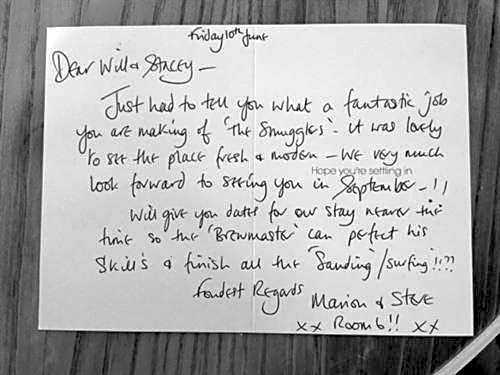 Friday 10th June
Dear Will & Stacey —
Just had to tell you what a fantastic job
you are making of 'The Smuggles'. It was lovely
to see the place fresh & modern — we very much
Hope you're settling in
look forward to seeing you in September — !!
Will give you dates for our stay nearer the
time so the 'Brewmaster' can perfect his
skill's & finish all the 'Sanding'/surfing'!!??
Fondest Regards
Marion & Steve
xx Room 6!! xx